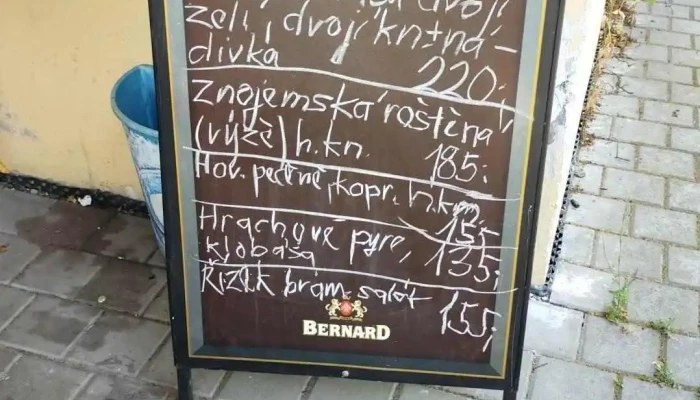 dvojí
zelí, dvojí kn+ná-
dívka 220,-
Znojemská roštěná,
(rýže) h.kn. 185,-
Hov. pečeně, kopr. h.kn.
155
Hrachové pyré,
klobása 135,-
Řízek bram. salát 155,-
BERNARD